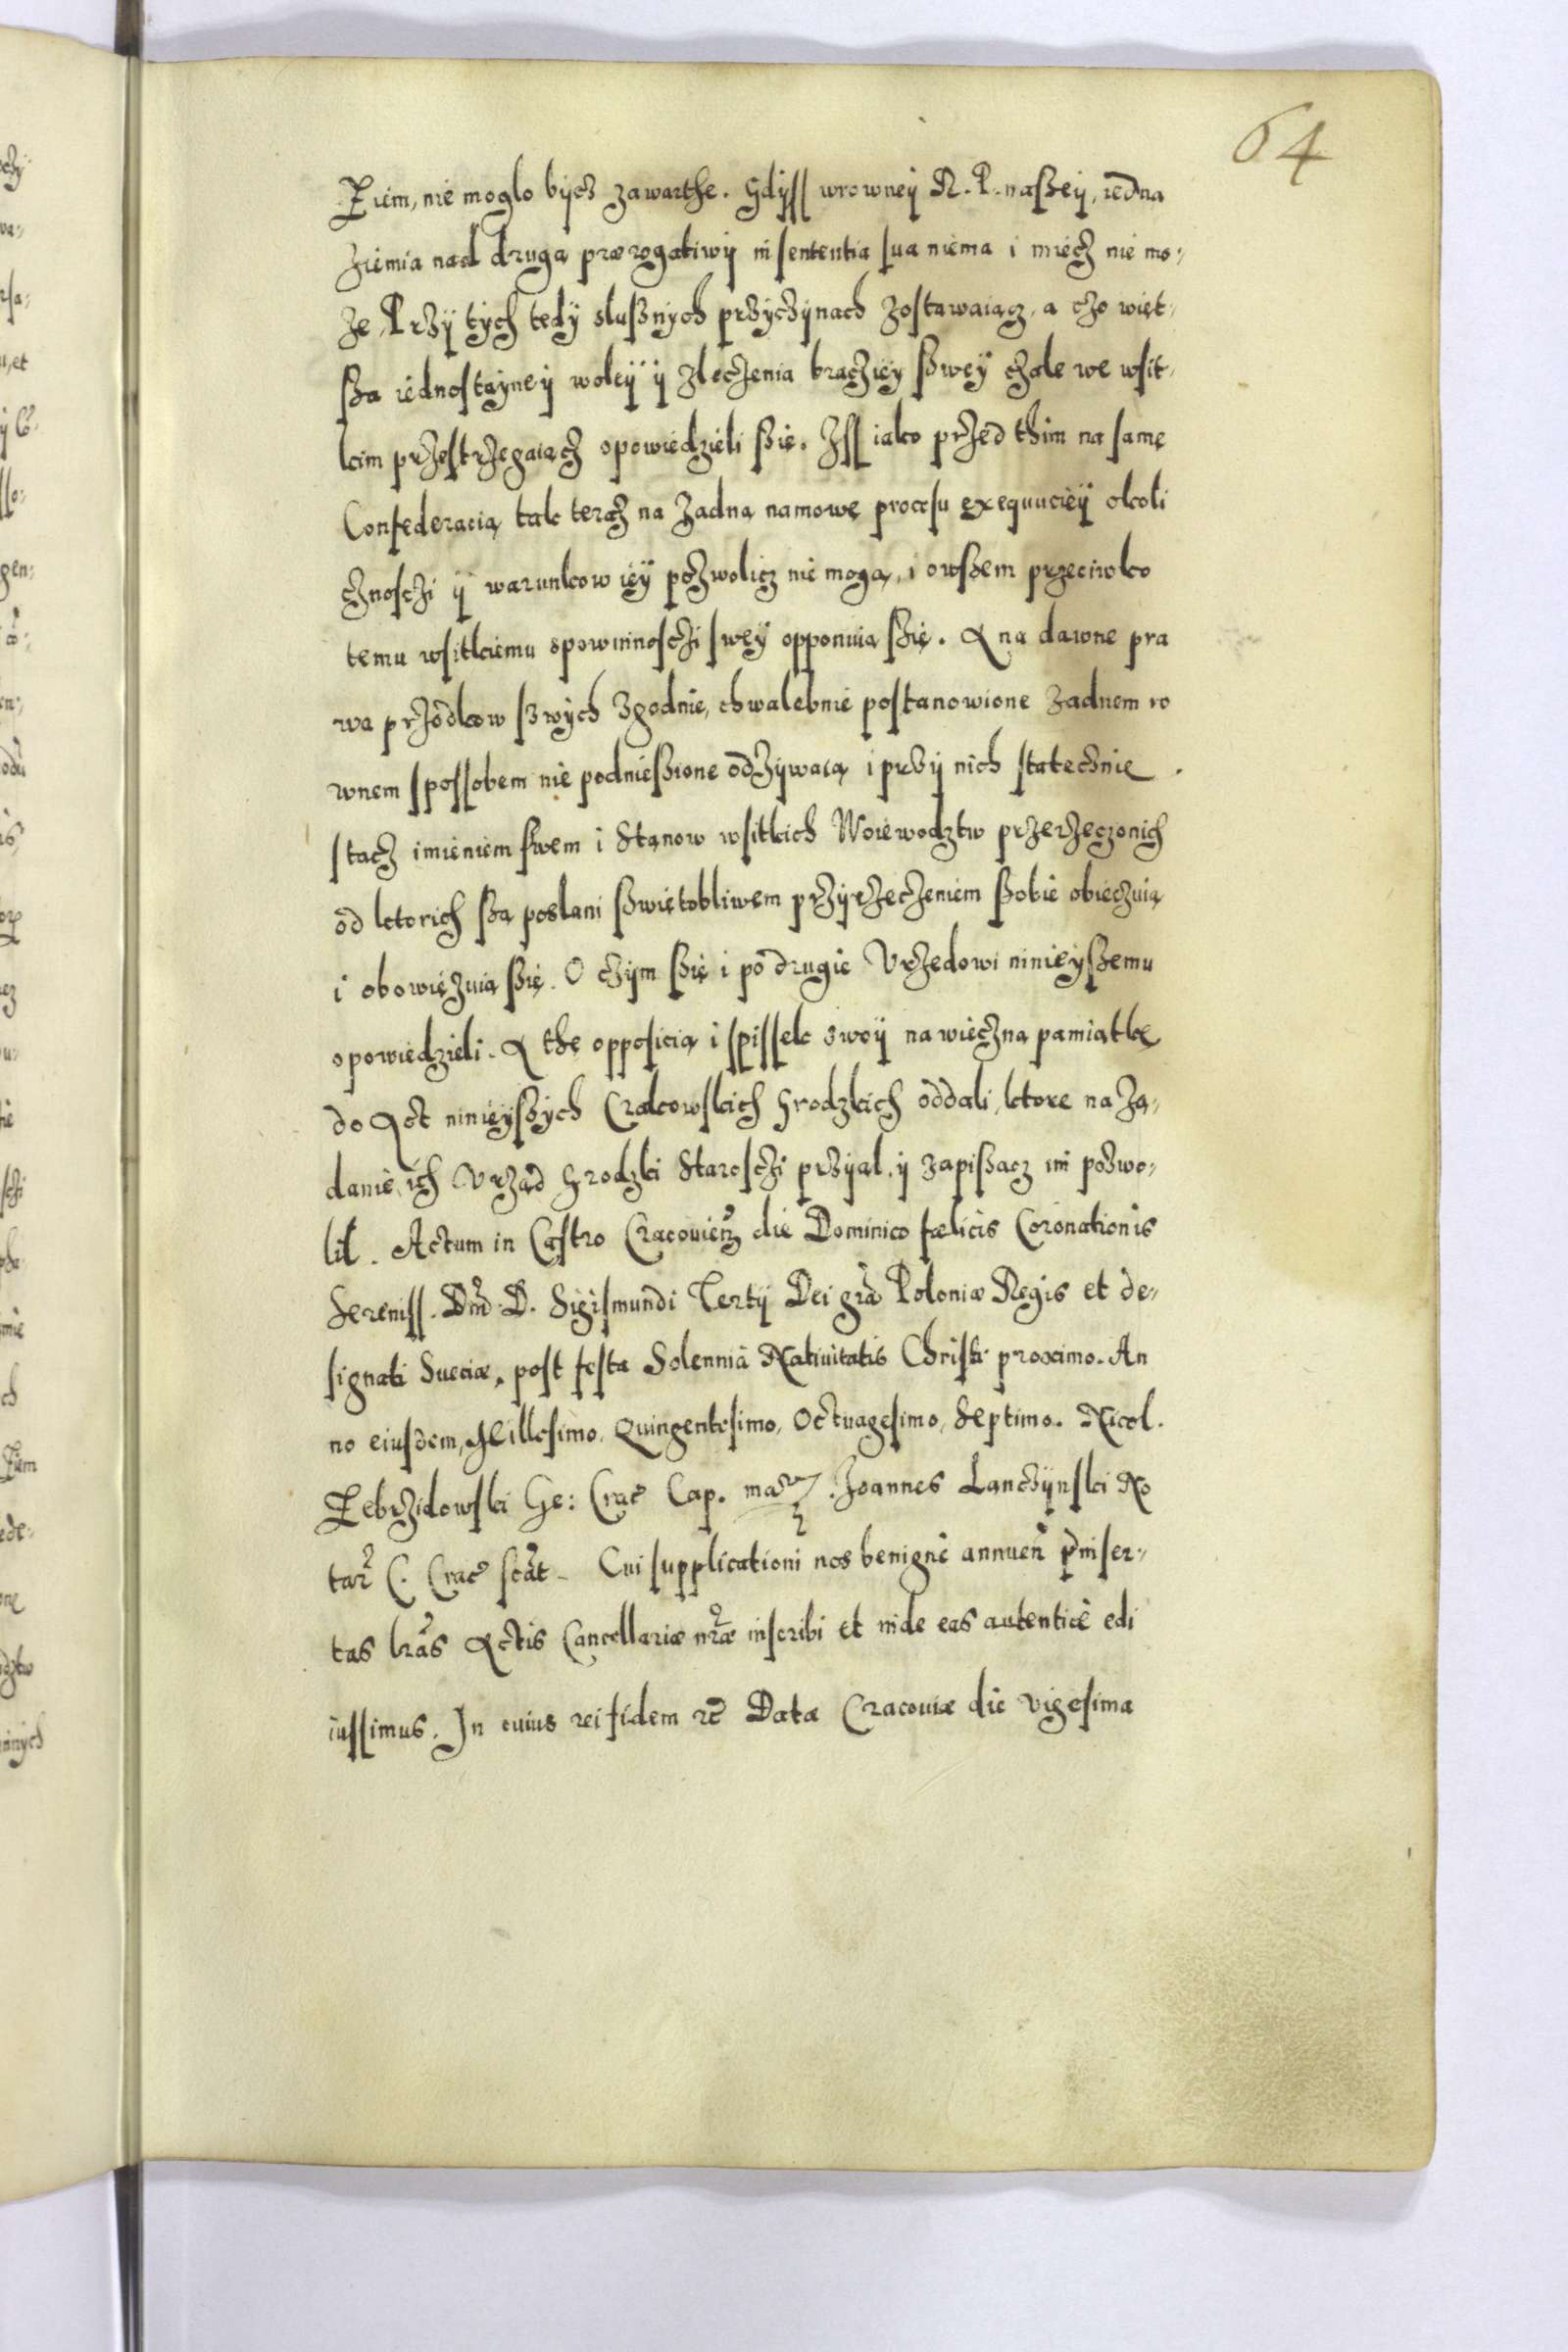 64
Ziem, nie moglo bycz zawarthe. Gdyss wrowney R. P. naszey, iedna
ziemia nad drugą praerogatiwy in sententia sua niema i miecz nie mo-
że, Przy tych tedy slusznych przyczynach zostawaiącz, a czo więt-
sza iednostayney woley y zleczenia braciey szwey czale we wsit-
kim przestrzegaiącz opowiedzieli szie. Iss iako przed thim na samę
Confederacią tak teraz na żadną namowę procesu exequuciey okoli
cznosczi y warunkow iey pozwolicz nie mogą, i owszem przeciwko
temu wsitkiemu spowinnosczi swey opponuią szię. A na dawne pra
wa przodkow szwych zgodnie, chwalebnie postanowione żadnem ro
wnem spossobem nie podnieszione odzywaią i przy nich statecznie
stacz imieniem swem i Stanow wsitkich Woiewodztw przerzeczonich
od ktorich szą poslani szwiętobliwem przyrzeczeniem szobie obieczuią
i obowięzuią szię. O czym szię i po drugie Vrzedowi ninieyszemu
opowiedzieli. A thę opposicią i spissek swoy na wieczną pamiątkę
do Act ninieyszych Crakowskich Grodzkich oddali, ktore na żą-
danie ich Vrząd Grodzki Starosczi przyal. y zapiszacz im pozwo-
lil. Actum in Castro Cracouien die Dominico faelicis Coronationis
Sereniss. Dni D. Sigismundi Tertij Dei gra Poloniae Regis et de-
signati Sueciae, post festa Solennia Natiuitatis Christi proximo. An
no eiusdem, Millesimo, Quingentesimo, Octuagesimo, Septimo. Nicol.
Zebrzidowski Ge: Crac Cap. Joannes Lanczynski No
tar C. Crac Cui supplicationi nos benignè annuen pinser-
tas lras Actis Cancellariae nrae inscribi et inde eas autenticè edi
iussimus. In cuius rei fidem rc Data Cracouiae die vigesima